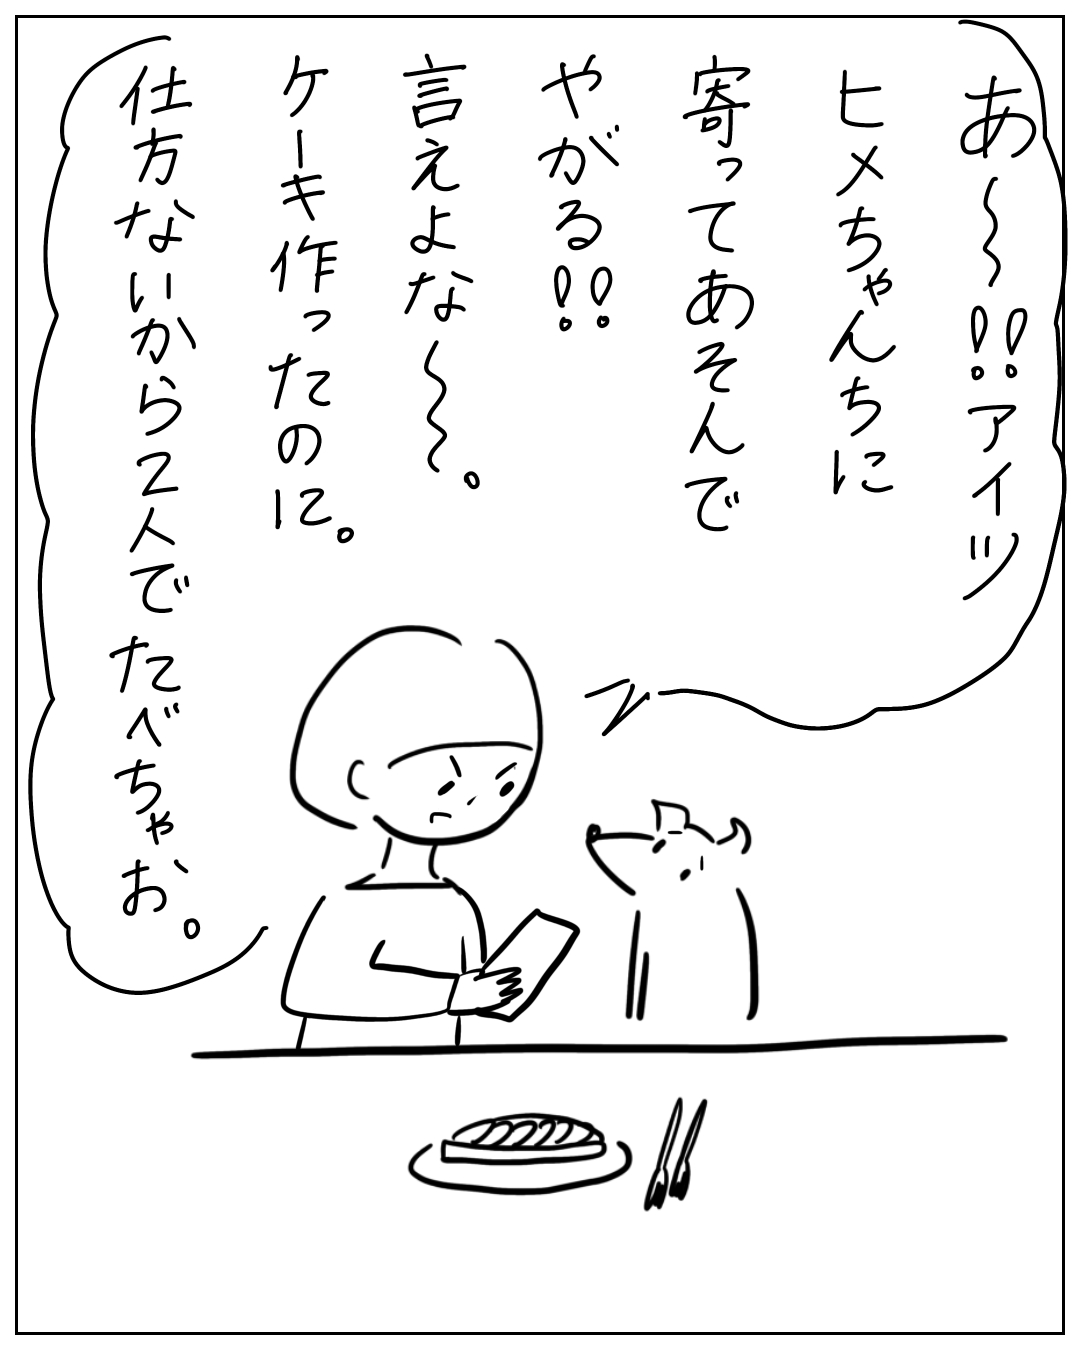 あ〜!!アイツ
ヒメちゃんちに
寄ってあそんで
やがる!!
言えよな〜〜。
ケーキ作ったのに。
仕方ないから2人でたべちゃお。